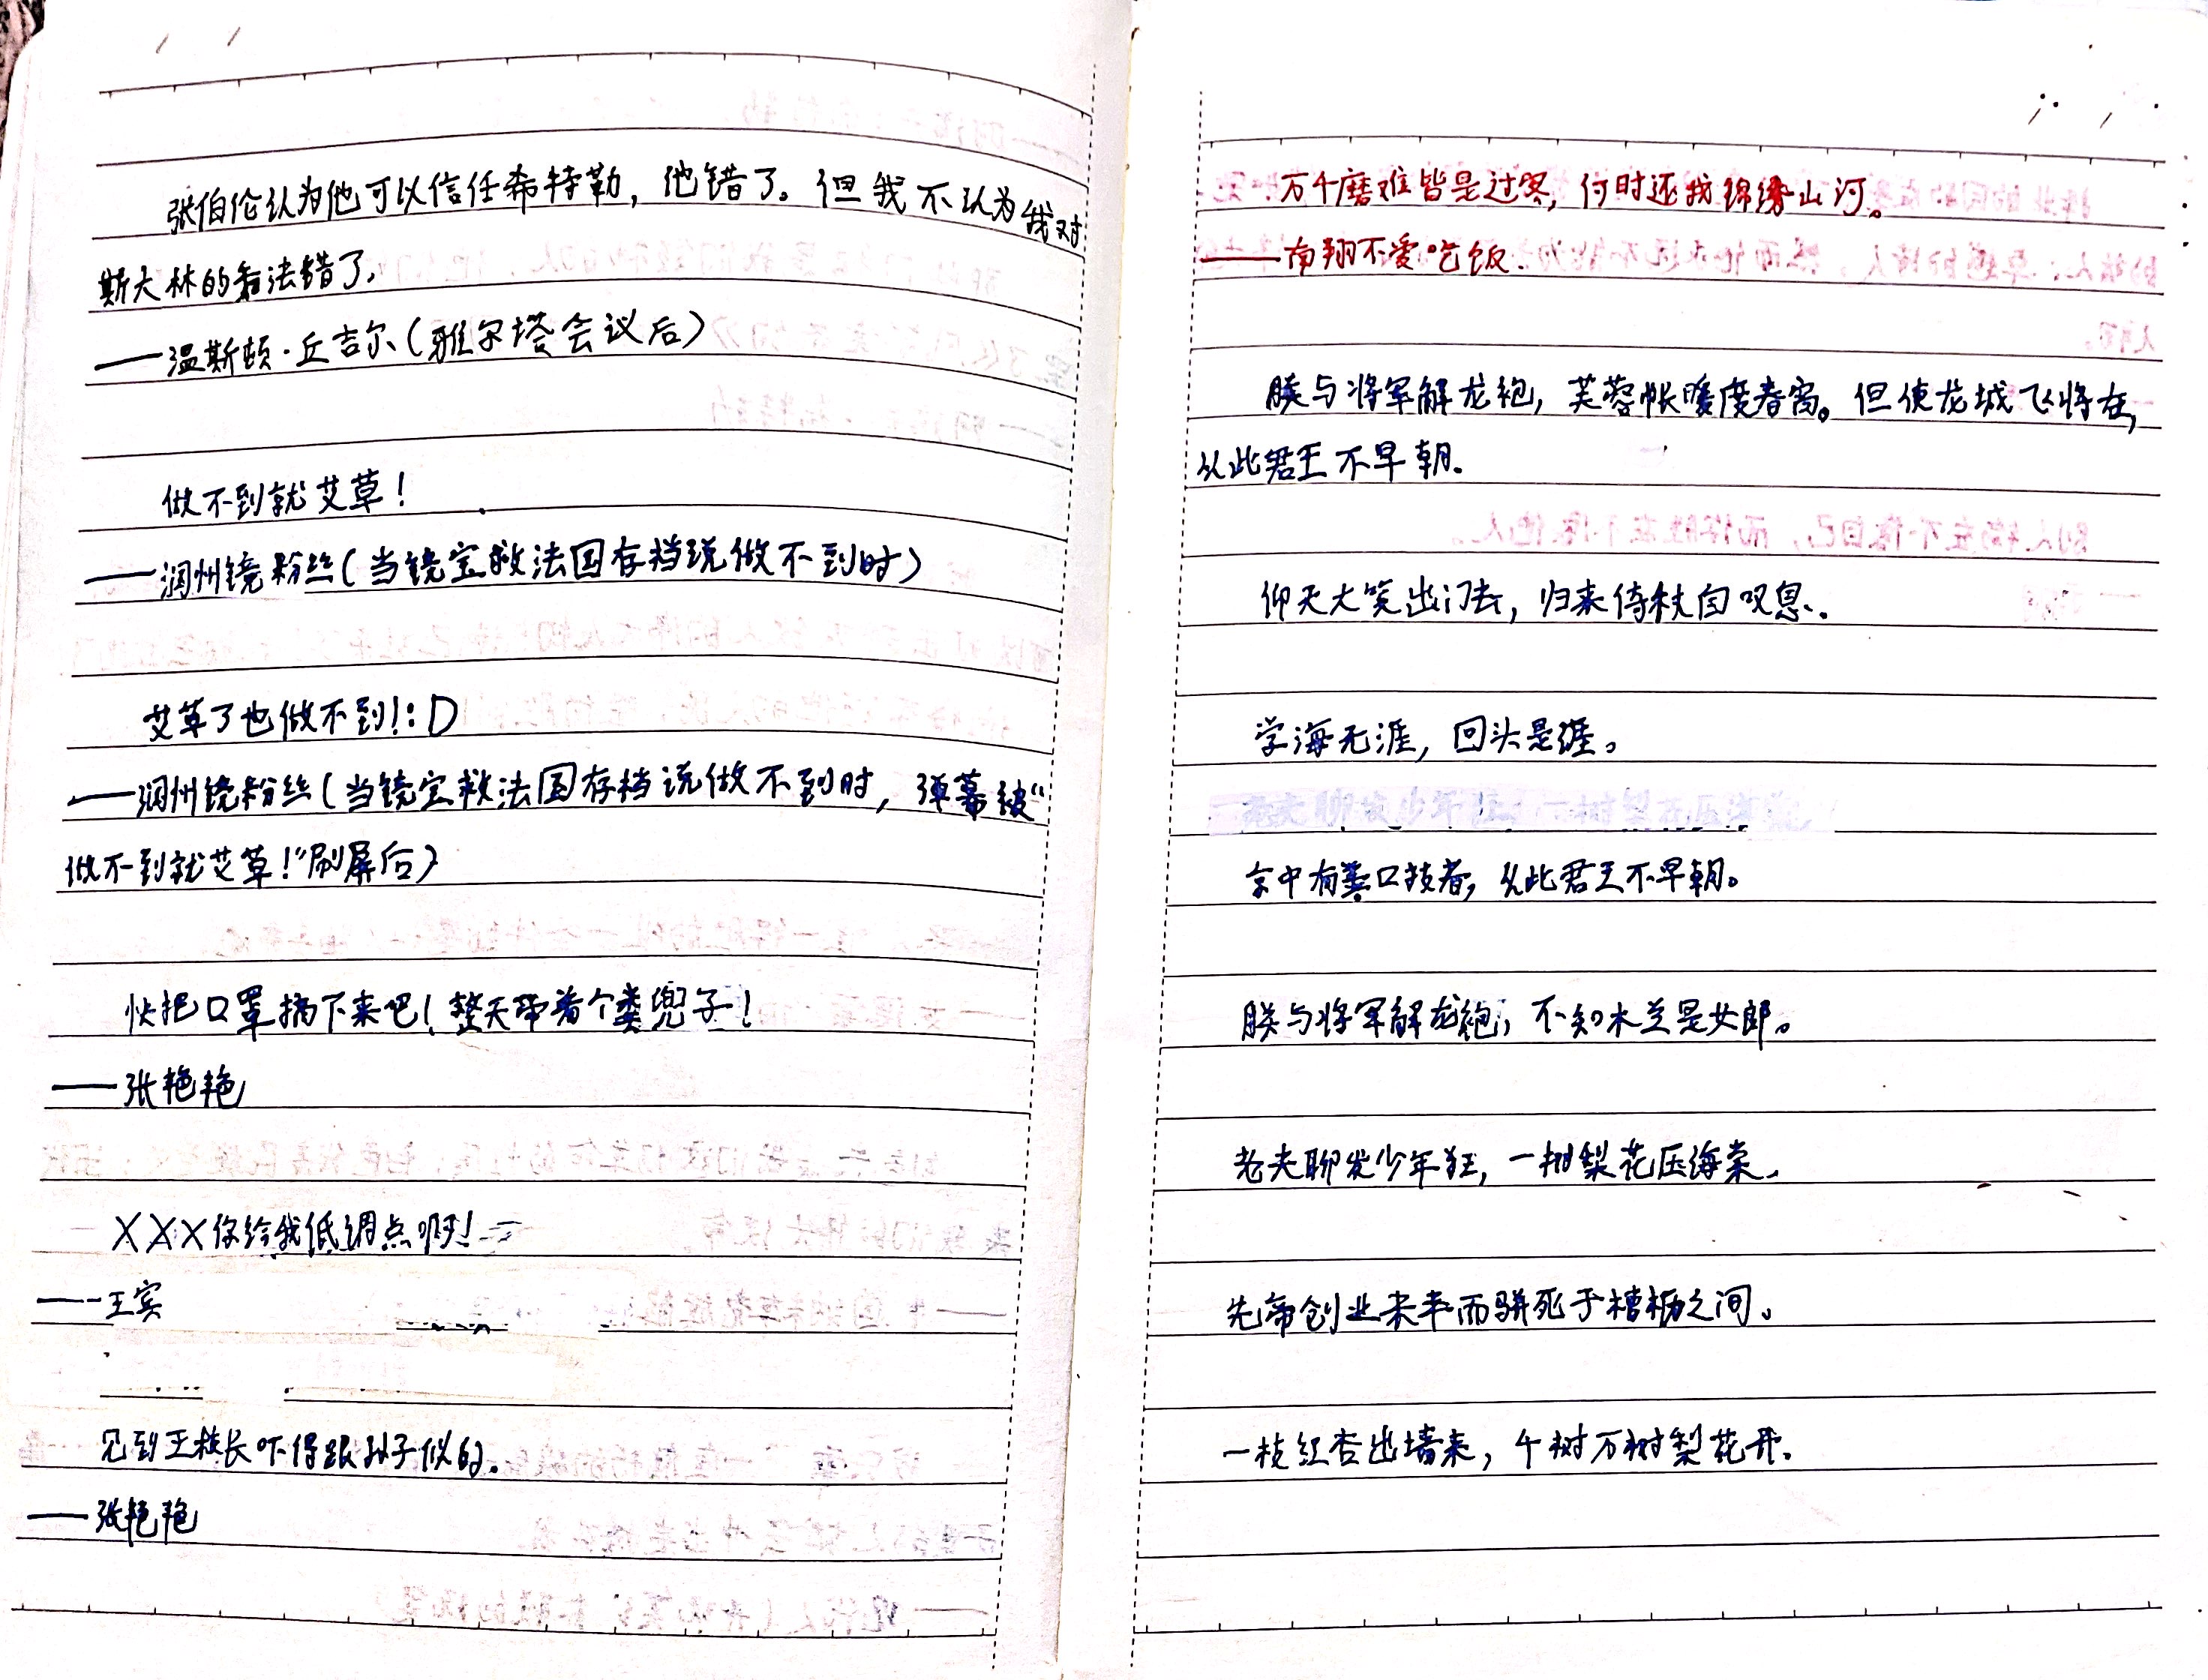 张伯伦认为他可以信任希特勒，他错了。但我不认为我对
斯大林的看法错了。
——温斯顿·丘吉尔（雅尔塔会议后）
做不到就艾草！
——润州镜粉丝（当镜宝救法国存档说做不到时）
艾草了也做不到！:D
——润州镜粉丝（当镜宝救法国存档说做不到时，弹幕被“
做不到就艾草！”刷屏后）
快把口罩摘下来吧！整天带着个粪兜子！
——张艳艳
XXX你给我低调点啊！
——王宾
见到王校长吓得跟孙子似的。
——张艳艳
万千磨难皆是过客，何时还我锦绣山河。
——南翔不爱吃饭
朕与将军解龙袍，芙蓉帐暖度春宵。但使龙城飞将在，
从此君王不早朝。
仰天大笑出门去，归来倚杖自叹息。
学海无涯，回头是涯。
京中有善口技者，从此君王不早朝。
朕与将军解龙袍，不知木兰是女郎。
老夫聊发少年狂，一树梨花压海棠。
先帝创业未半而骈死于槽枥之间。
一枝红杏出墙来，千树万树梨花开。